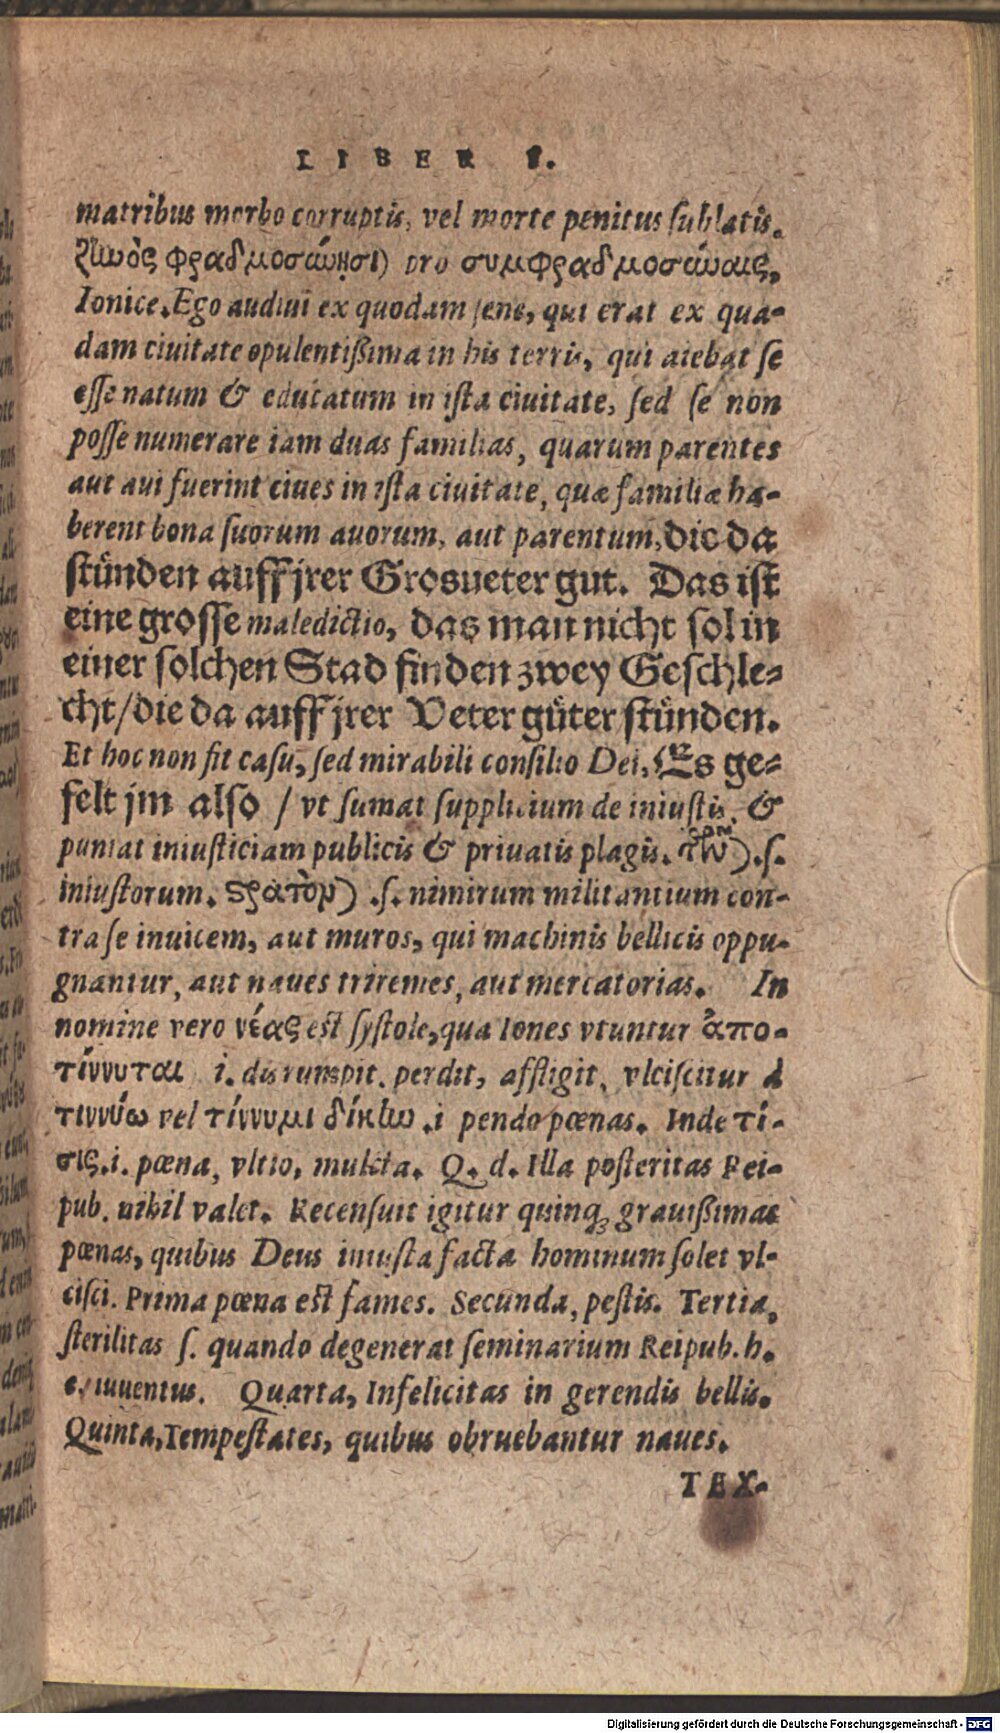 LIBER I.
matribus morbo corruptis, vel morte penitus sublatis.
ζωὸς φραδμοσώῃσι) pro συμφραδμοσώαις,
Ionice. Ego audiui ex quodam sene, qui erat ex qua-
dam ciuitate opulentißima in his terris, qui aiebat se
esse natum & educatum in ista ciuitate, sed se non
posse numerare iam duas familias, quarum parentes
aut aui fuerint ciues in ista ciuitate, quæ familiæ ha-
berent bona suorum auorum, aut parentum, die da
stůnden auff jrer Grosueter gut. Das ist
eine grosse maledictio, das man nicht sol in
einer solchen Stad finden zwey Geschle-
cht/die da auff jrer Veter gůter stůnden.
Et hoc non fit casu, sed mirabili consilio Dei, Es ge-
felt jm also / vt sumat supplicium de iniustis, &
puniat iniusticiam publicis & priuatis plagis. τῶν) .s.
iniustorum. ςρατὸν) .s. nimirum militantium con-
tra se inuicem, aut muros, qui machinis bellicis oppu-
gnantur, aut naues triremes, aut mercatorias. In
nomine vero νέας est systole, qua Iones vtuntur ἀπο-
τίννυται i. disrumpit. perdit, affligit, vlciscitur à
τιννύω vel τίννυμι δίκλω .i pendo pœnas. Inde τί-
σις.i. pœna, vltio, mulcta. Q. d. Illa posteritas Rei-
pub. nihil valet. Recensuit igitur quinq; grauißimas
pœnas, quibus Deus iniusta facta hominum solet vl-
cisci. Prima pœna est fames. Secunda, pestis. Tertia,
sterilitas s. quando degenerat seminarium Reipub. h.
e. iuuentus. Quarta, Infelicitas in gerendis bellis.
Quinta, Tempestates, quibus obruebantur naues.
TEX-
Digitalisierung gefördert durch die Deutsche Forschungsgemeinschaft - DFG